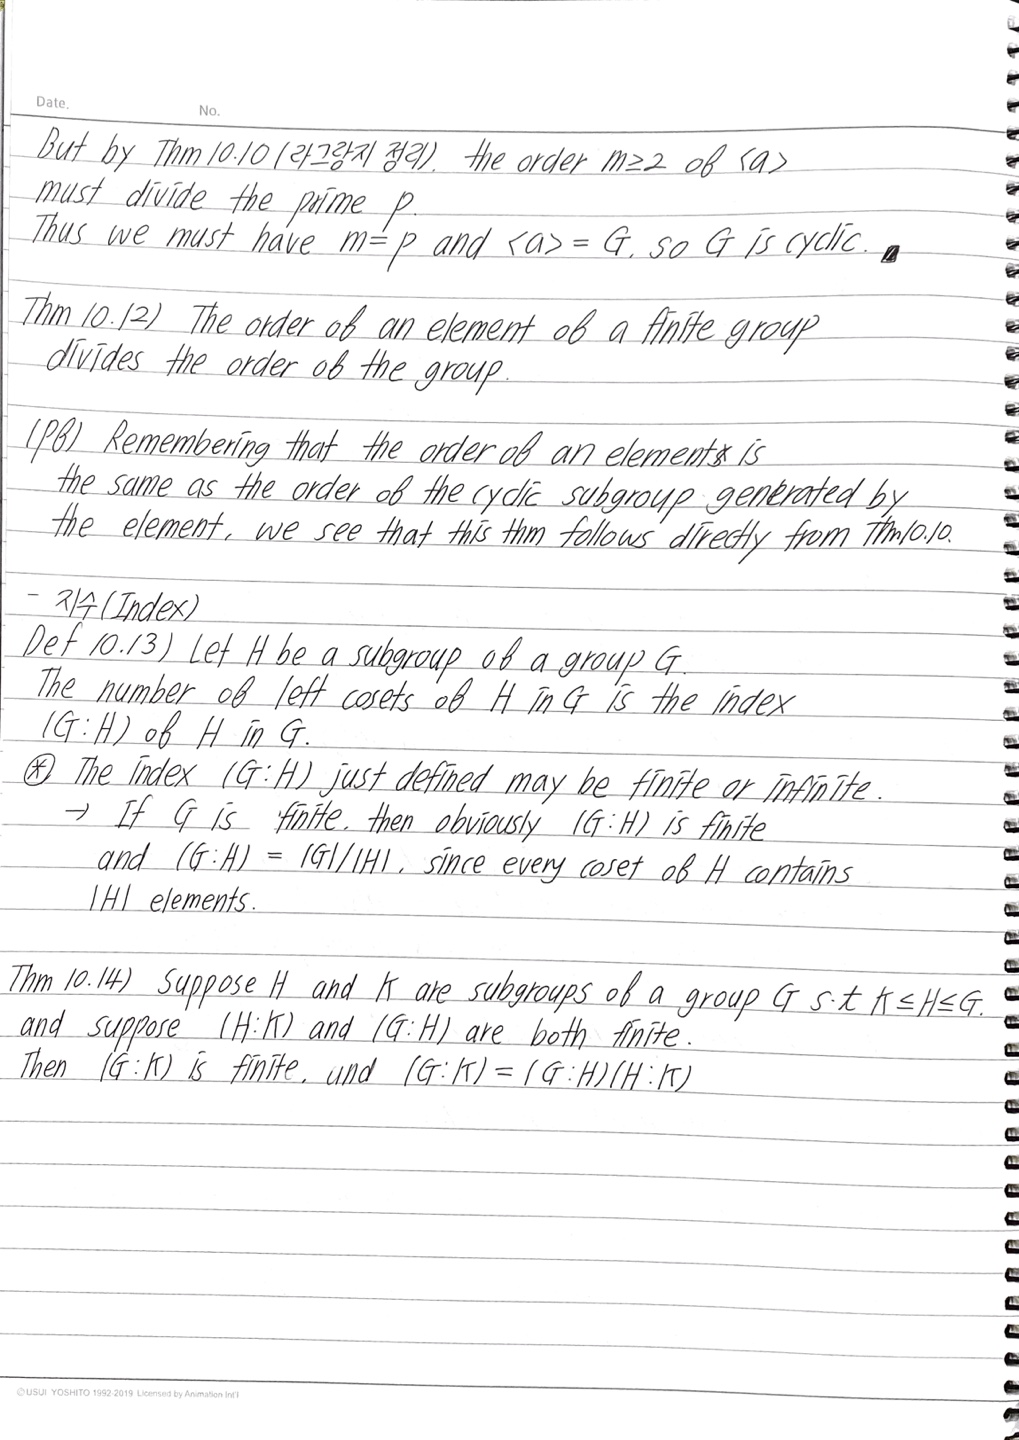 Date.
No.
But by Thm 10.10 (라그랑지 정리), the order m≥2 of <a>
must divide the prime p.
Thus we must have m=p and <a> = G, so G is cyclic.
Thm 10.12) The order of an element of a finite group
divides the order of the group.
(pf) Remembering that the order of an element is
the same as the order of the cyclic subgroup generated by
the element, we see that this thm follows directly from Thm10.10.
- 지수(Index)
Def 10.13) Let H be a subgroup of a group G.
The number of left cosets of H in G is the index
(G:H) of H in G.
⊛ The index (G:H) just defined may be finite or infinite.
→ If G is finite, then obviously (G:H) is finite
and (G:H) = |G|/|H|, since every coset of H contains
|H| elements.
Thm 10.14) Suppose H and K are subgroups of a group G s.t K≤H≤G.
and suppose (H:K) and (G:H) are both finite.
Then (G:K) is finite, and (G:K) = (G:H)(H:K)
©USUI YOSHITO 1992-2019 Licensed by Animation Int'l